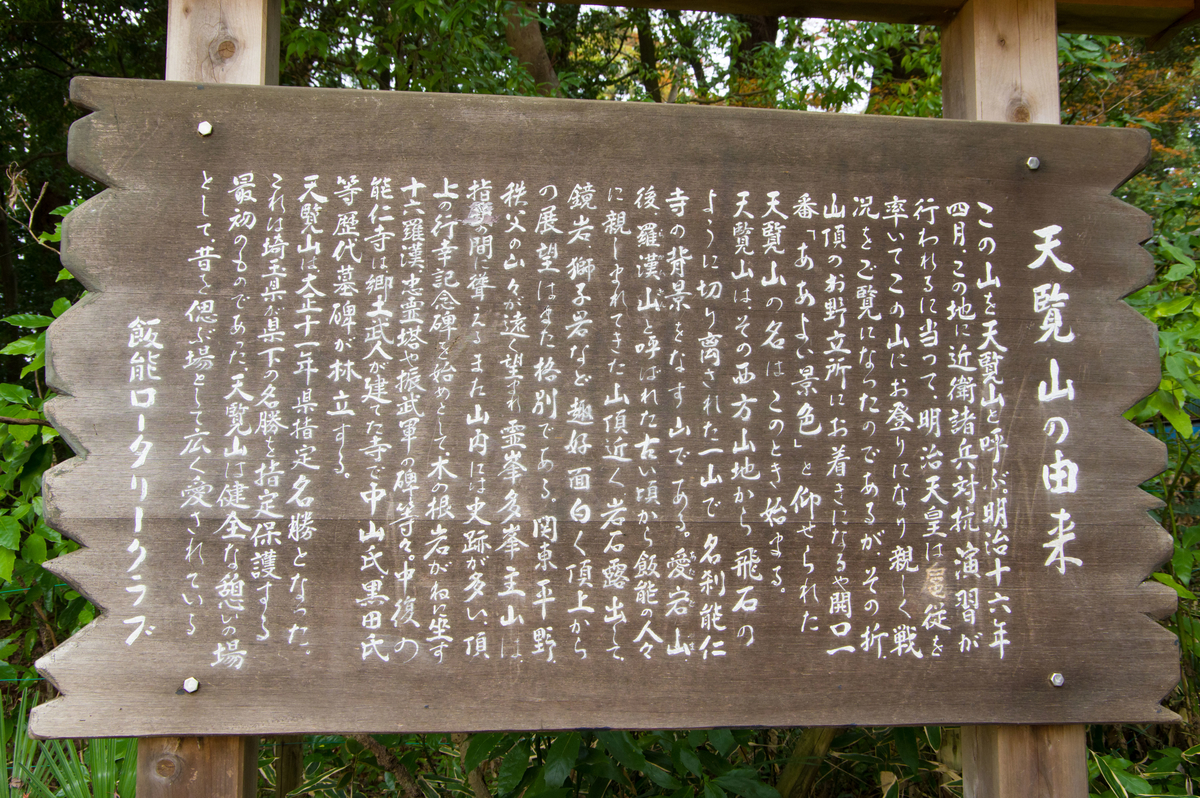 天覧山の由来
この山を天覧山と呼ぶ、明治十六年
四月、この地に近衛諸兵対抗演習が
行われるに当って、明治天皇は扈従を
率いてこの山にお登りになり親しく戦
況をご覧になったのであるが、その折、
山頂のお野立所にお着きになるや開口一
番「ああよい景色」と仰せられた
天覧山の名はこのとき始まる。
天覧山はその西方山地から飛石の
ように切り離された一山で名刹能仁
寺の背景をなす山である。愛宕山、
後羅漢山と呼ばれた古い頃から飯能の人々
に親しまれてきた山頂近く岩石露出して
鏡岩、獅子岩など趣好面白く頂上から
の展望はまた格別である。関東平野、
秩父の山々が遠く望まれ霊峯多峯主山は、
指呼の間に聳えるまた山内には史跡が多い、頂
上の行幸記念碑を始めとして、木の根岩がねに坐す
十六羅漢、忠霊塔や振武軍の碑等々。中復の
能仁寺は郷土武人が建てた寺で中山氏、黒田氏
等歴代墓碑が林立する。
天覧山は大正十一年県指定名勝となった。
これは埼玉県が県下の名勝を指定保護する
最初のものであった、天覧山は健全な憩いの場
として、昔を偲ぶ場として広く愛されている
飯能ロータリークラブ